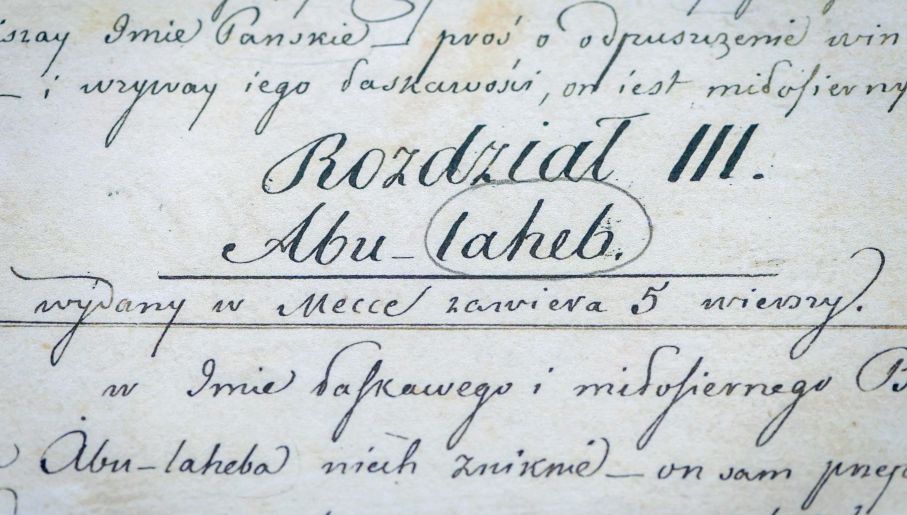 szay Imie Panskie — proś o odpuszczenie win
— i wzyway iego łaskawości, on iest miłosierny
Rozdział III.
Abu-laheb.
wydany w Mecce zawiera 5 wierszy.
w Imie łaskawego i miłosiernego B
Abu-laheba niech zniknie — on sam